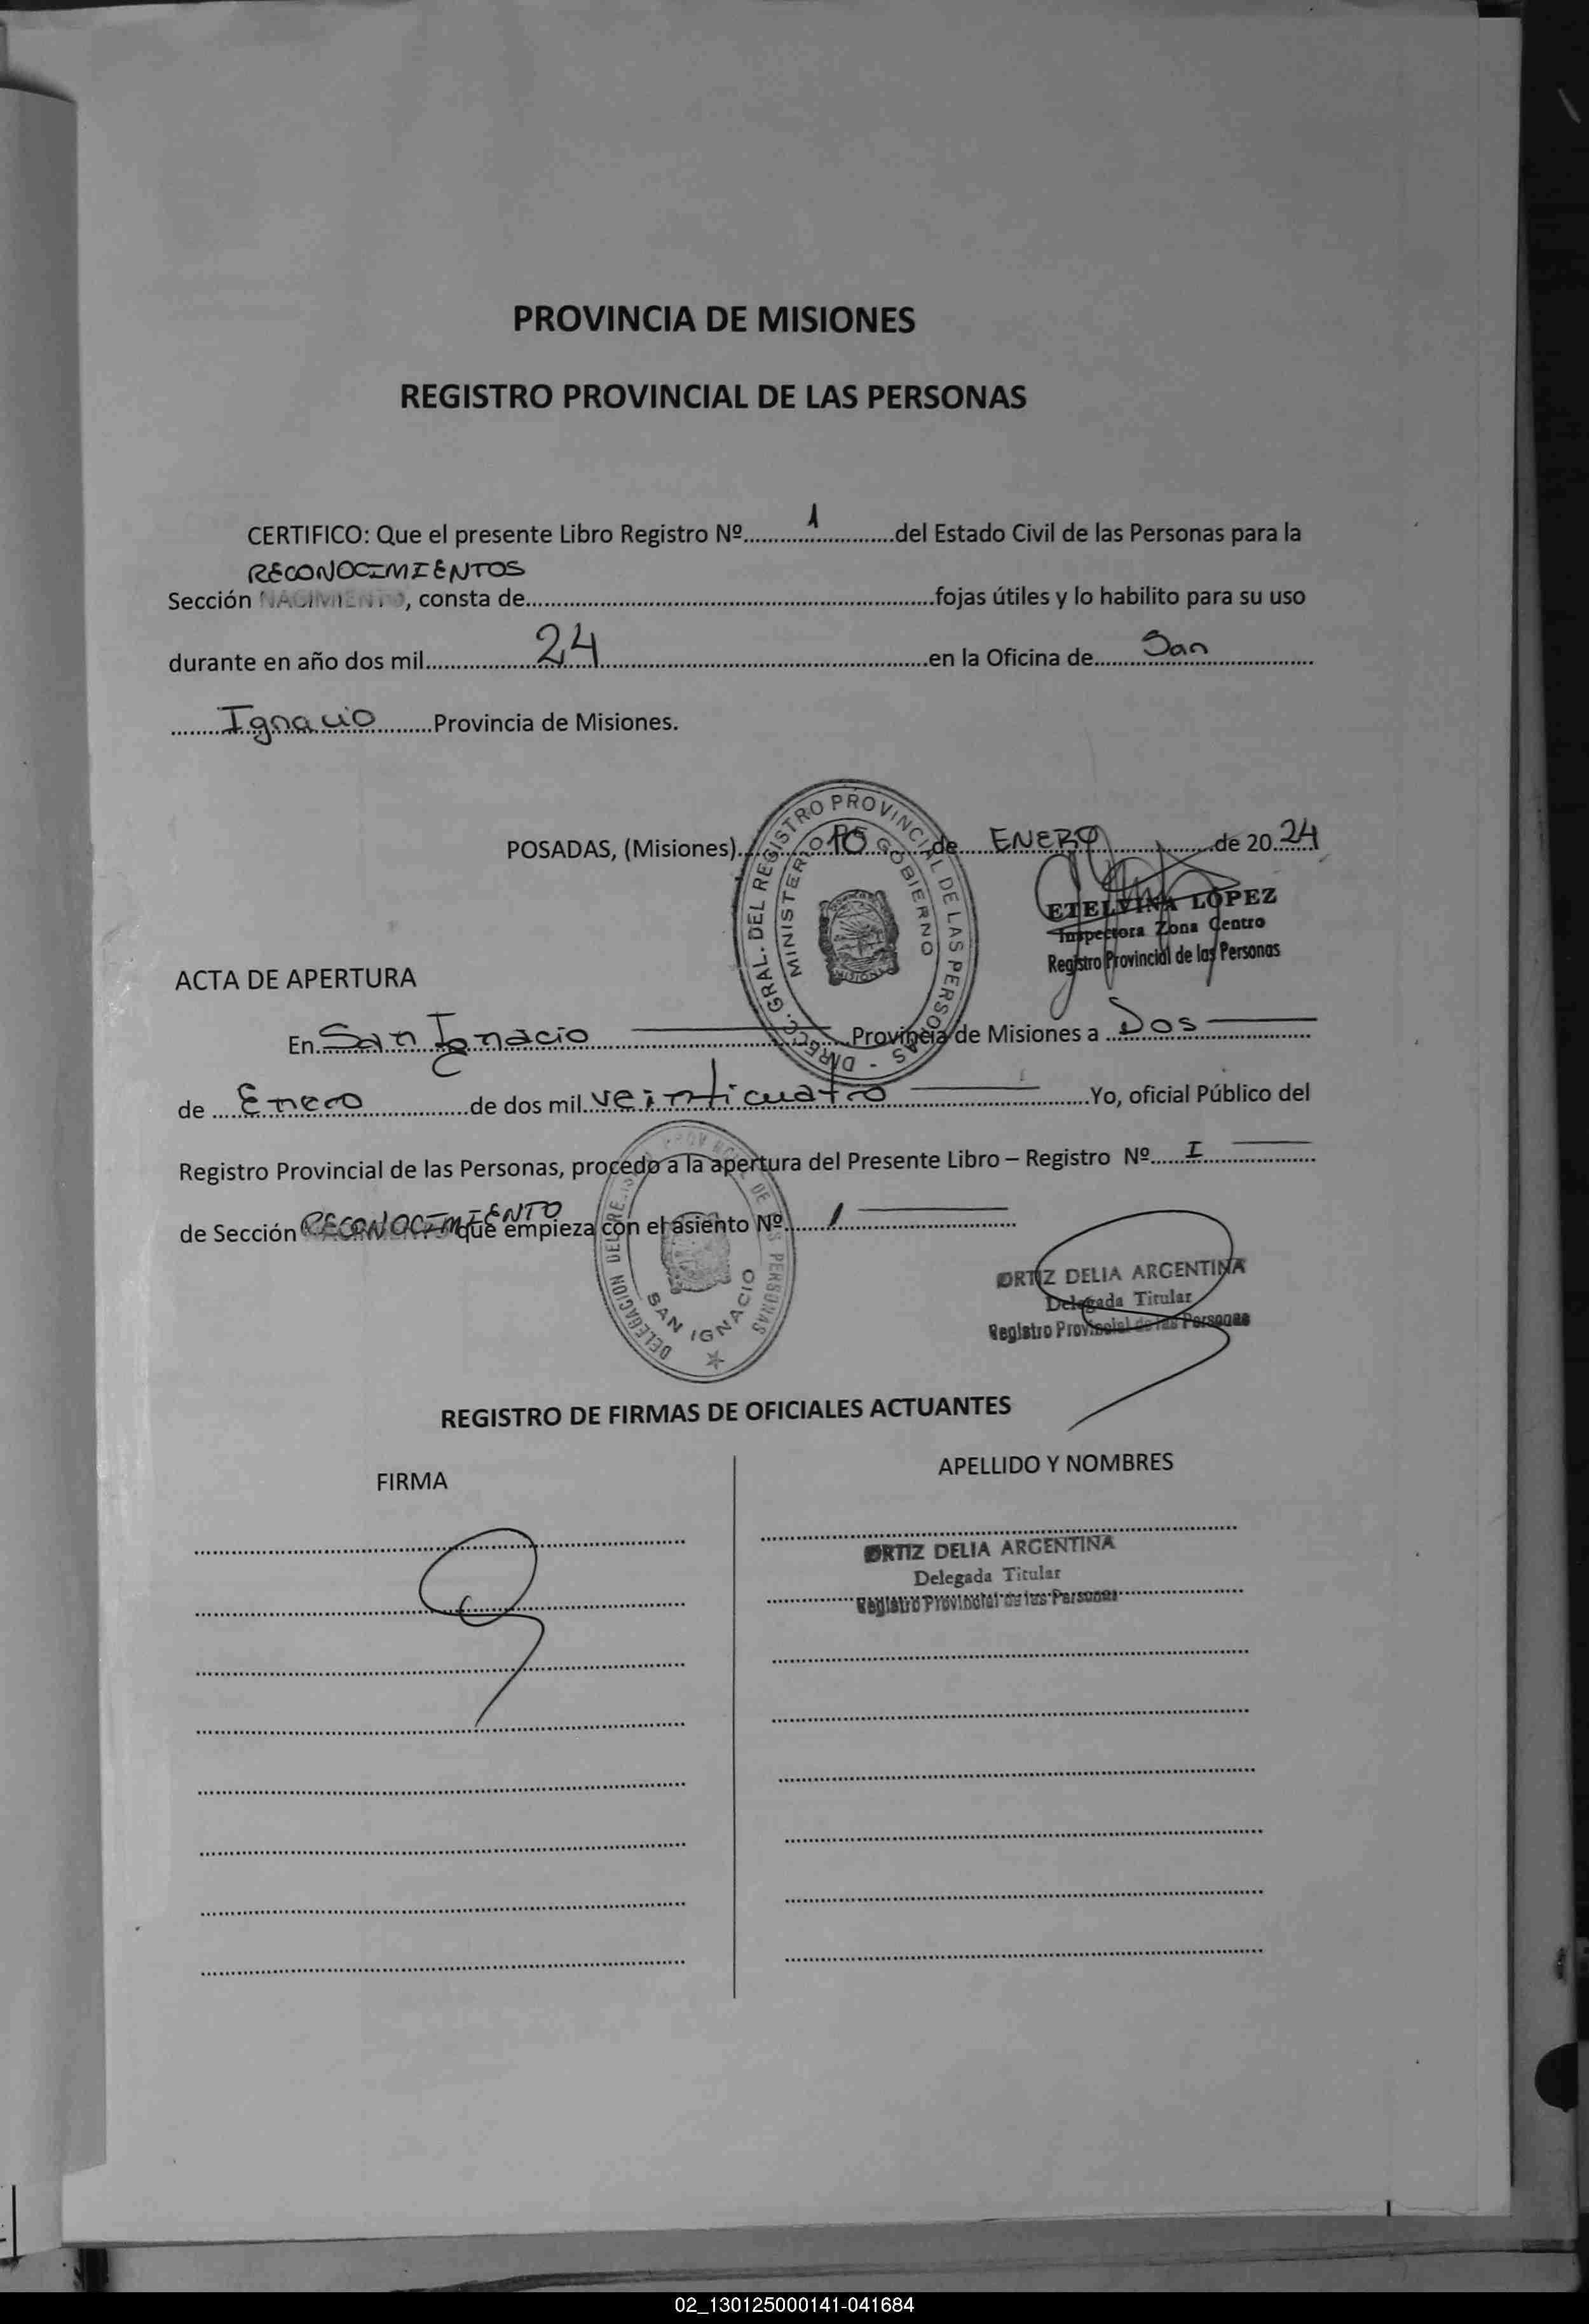 PROVINCIA DE MISIONES
REGISTRO PROVINCIAL DE LAS PERSONAS
CERTIFICO: Que el presente Libro Registro Nº 1 del Estado Civil de las Personas para la
RECONOCIMIENTOS
Sección NACIMIENTO, consta de fojas útiles y lo habilito para su uso
durante en año dos mil 24 en la Oficina de San
Ignacio Provincia de Misiones.
POSADAS, (Misiones) 10 de ENERO de 2024
DIRECC. GRAL. DEL REGISTRO PROVINCIAL DE LAS PERSONAS -
MINISTERIO DE GOBIERNO
MISIONES
ETELVINA LOPEZ
Inspectora Zona Centro
Registro Provincial de las Personas
ACTA DE APERTURA
En San Ignacio Provincia de Misiones a Dos
de Enero de dos mil veinticuatro Yo, oficial Público del
Registro Provincial de las Personas, procedo a la apertura del Presente Libro – Registro Nº I
de Sección RECONOCIMIENTO que empieza con el asiento Nº 1
DELEGACION DEL REGISTRO PROVINCIAL DE LAS PERSONAS
SAN IGNACIO
ORTIZ DELIA ARGENTINA
Delegada Titular
Registro Provincial de las Personas
REGISTRO DE FIRMAS DE OFICIALES ACTUANTES
FIRMA
APELLIDO Y NOMBRES
ORTIZ DELIA ARGENTINA
Delegada Titular
Registro Provincial de las Personas
02_130125000141-041684